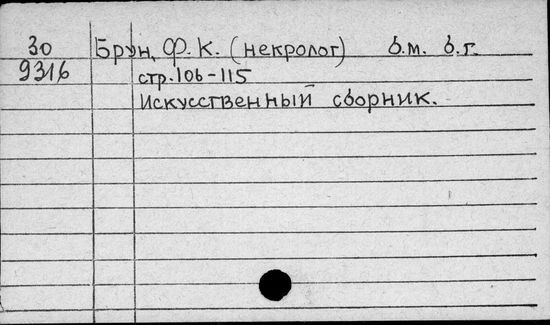 30 Брун, Ф. К. (некролог) б.м. б.г.
9316 стр. 106-115
Искусственный сборник.